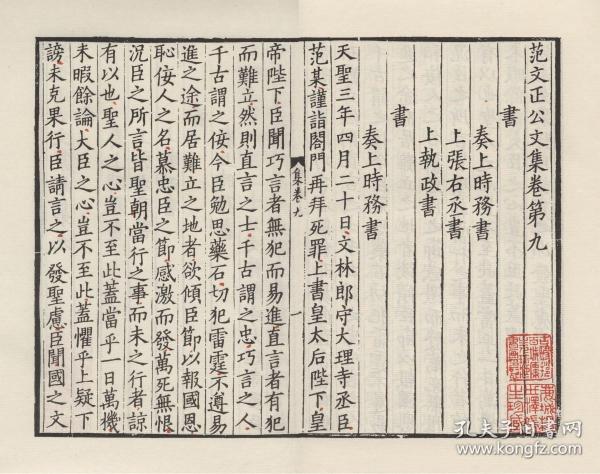 范文正公文集卷第九
書
奏上時務書
上張右丞書
上執政書
書
奏上時務書
天聖三年四月二十日文林郎守大理寺丞臣
范某謹詣閤門再拜死罪上書皇太后陛下皇
集卷九
一
帝陛下臣聞巧言者無犯而易進直言者有犯
而難立然則直言之士千古謂之忠巧言之人
千古謂之佞今臣勉思藥石切犯雷霆不遵易
進之途而居難立之地者欲傾臣節以報國恩
恥佞人之名慕忠臣之節感激而發萬死無恨
況臣之所言皆聖朝當行之事而未之行者諒
有以也聖人之心豈不至此蓋當乎一日萬機
未暇餘論大臣之心豈不至此蓋懼乎上疑下
謗未克果行臣請言之以發聖慮臣聞國之文
孔夫子旧书网